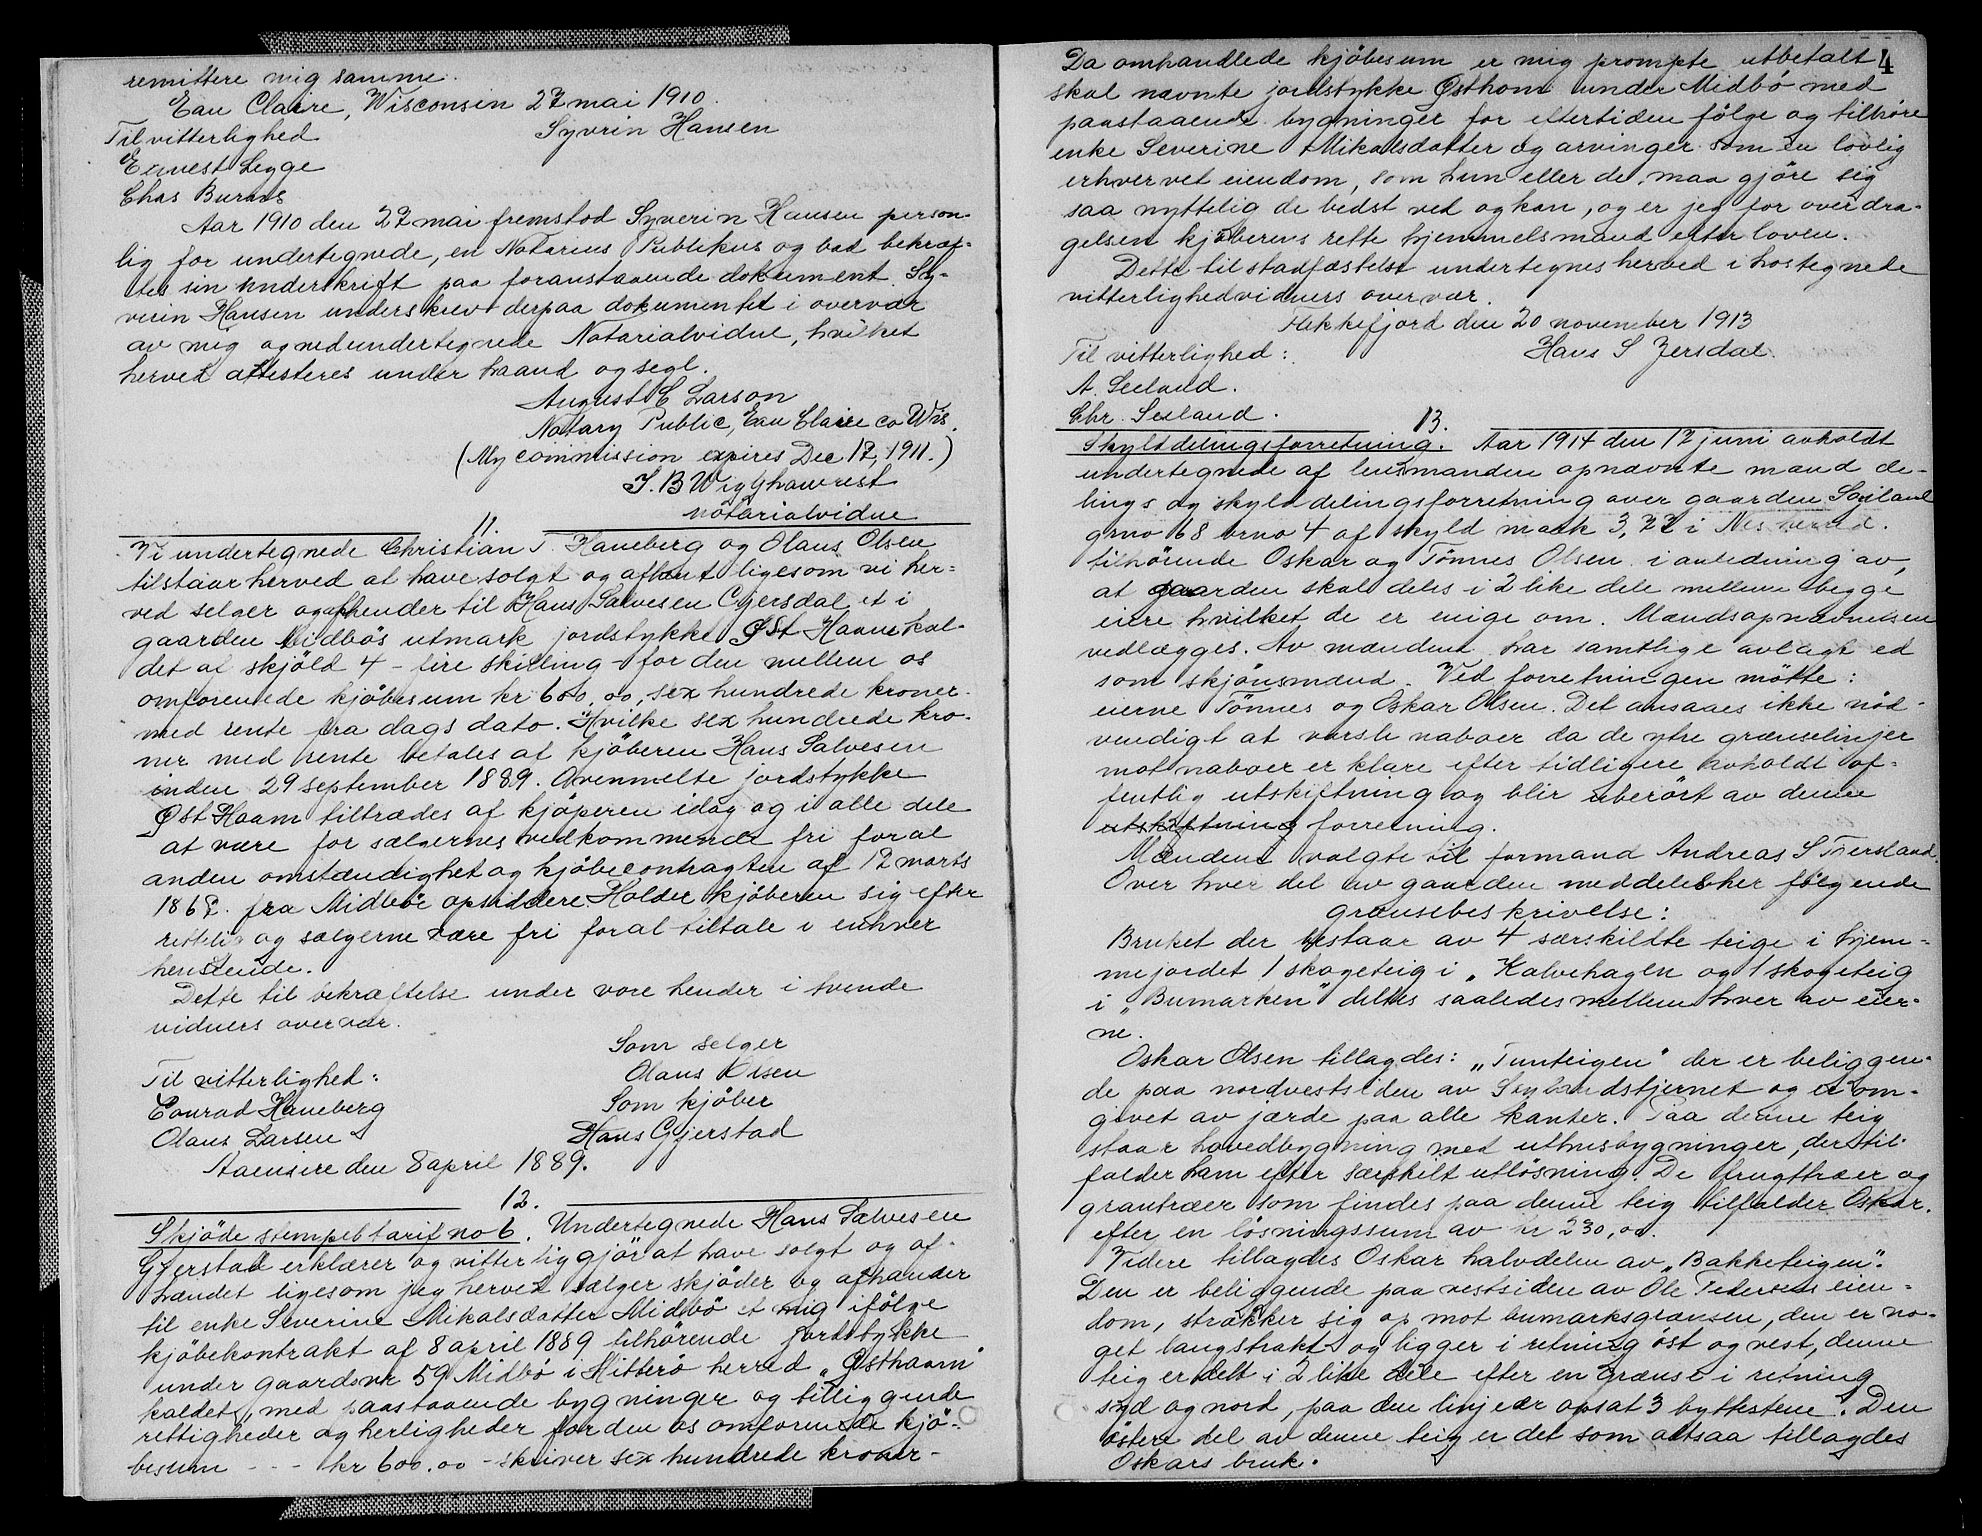 remittere mig samme.
Eau Claire, Wisconsin 27 mai 1910.
Til vitterlighed Syvrin Hansen
Ernest Legge
Chas Burns
Aar 1910 den 27 mai fremstod Syverin Hansen person-
lig for undertegnede, en Notarius Publikus og bad bekræf-
tes sin underskrift paa foranstaaende dokument. Sy-
verin Hansen underskrev derpaa dokumentet i overvær
av mig og nedundertegnede Notarialvidne, hvilket
herved attesteres under haand og segl.
August C Larson
Notary Public, Eau Claire co Wis.
(My commission expires Dec 17, 1911.)
notarialvidne
11.
Vi undertegnede Christian T. Haneberg og Olaus Olsen
tilstaar herved at have solgt og afhent ligesom vi her-
ved selger og afhender til Hans Salvesen Gjersdal et i
gaarden Midbös utmark jordstykke Øst Haavn kal-
det af skjöld 4 - fire skilling - for den mellem os
omforenede kjöbesum kr 600,00, sex hundrede kroner
med rente fra dags dato. Hvilke sex hundrede kro-
ner med rente betales af kjöberen Hans Salvesen
inden 29 september 1889. Ovenmelte jordstykke
Øst Haam tiltrædes af kjöperen idag og i alle dele
at være for sælgernes vedkommende fri for al
anden omstændighet og kjöbecontragten af 12 marts
186 fra Midboe opsiddere. Holder kjöberen sig efter
rettelig og sælgerne være fri for al tiltale i enhver
henseende.
Dette til bekræftelse under vore hender i tvende
vidners overvær.
Som selger
Til vitterlighed: Olaus Olsen
Conrad Haneberg Som kjöber
Olaus Larsen Hans Gjerstad
Aaensire den 8 april 1889.
12.
Skjöde stempeltarif no 6. Undertegnede Hans Salvesen
Gjerstad erklærer og vitterliggjör at have solgt og af-
hændet ligesom jeg herved sælger skjöder og afhænder
til enke Severine Mikalsdatter Midbö et mig ifölge
kjöbekontrakt af 8 april 1889 tilhörende jordstykke
under gaardsnr 59 Midbö i Hitterö herred „Østhaam"
kaldet, med paastaaende bygninger og tilliggende
rettigheder og herligheder for den os omforenede kjö-
besum - - - kr 600.00 - skriver sex hundrede kroner -
4
Da omhandlede kjöbesum er mig prompte utbetalt
skal nævnte jordstykke Østhom under Midbö med
paastaaende bygninger for eftertiden fölge og tilhöre
enke Severine Mikalsdatter og arvinger som en lovlig
erhvervet eiendom, som hun eller de maa gjöre sig
saa nyttelig de bedst ved og kan, og er jeg for overdra-
gelsen kjöberens rette hjemmelsmand efter loven.
Dette til stadfæstelse undertegnes herved i hostegnede
vitterlighedvidners overvær.
Flekkefjord den 20 november 1913
Til vitterlighed: Hans S Jersdal.
A. Seeland.
Chr. Seeland.
13.
Skylddelingsforretning. Aar 1914 den 17 juni avholdt
undertegnede af lensmanden opnævnte mænd de-
lings og skylddelingsforretning over gaarden
grno 68 brno 4 af skyld mark 3,77 i Nes herred.
tilhörende Oskar og Tönnes Olsen i anledning av,
at gaarden skal deles i 2 like dele mellem begge
eiere hvilket de er enige om. Mændsopnævnelsen
vedlægges. Av mændene har samtlige avlagt ed
som skjönsmænd. Ved forretningen mötte:
eierne Tönnes og Oskar Olsen. Det ansaaes ikke nöd-
vendigt at varsle naboer da de ytre grænselinjer
mot naboer er klare efter tidligere avholdt of-
fentlig utskiftning og blir uberört av denne
utskiftning forretning.
Mændene valgte til formand Andreas S Tjersland.
Over hver del av gaarden meddeles her fölgende
grænsebeskrivelse:
Bruket der bestaar av 4 særskildte teige i hjem-
mejordet 1 skogeteig i „Kalvehagen og 1 skogeteig
i „Bumarken" deltes saaledes mellem hver av eier-
ne.
Oskar Olsen tillagdes: „Tunteigen" der er beliggen-
de paa nordvestsiden av Seylandstjernet og er om-
givet av jærde paa alle kanter. Paa denne teig
staar hovedbygning med uthusbygninger, der til-
falder ham efter særskilt utlösning. De frugttræer og
grantræer som findes paa denne teig tilfalder Oskar.
efter en lösningssum av kr 230,00.
Videre tillagdes Oskar halvdelen av „Bakketeigen".
Den er beliggende paa vestsiden av Ole Pedersens eien-
dom, strækker sig op mot bumarksgrænsen, den er no-
get langstrakt og ligger i retning öst og vest, denne
teig er delt i 2 like dele efter en grænse i retning
syd og nord, paa den linje er opsat 3 byttestene. Den
östere del av denne teig er det som altsaa tillagdes
Oskars bruk.